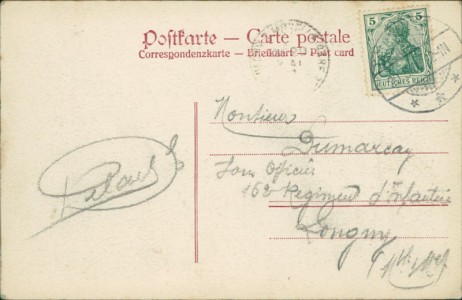 Postkarte — Carte postale
Correspondenzkarte — Briefkaart — Post card
5 5
DEUTSCHES REICH
Monsieur
Dumarcay
Sous Officier
162 Regiment d'Infanterie
Longwy